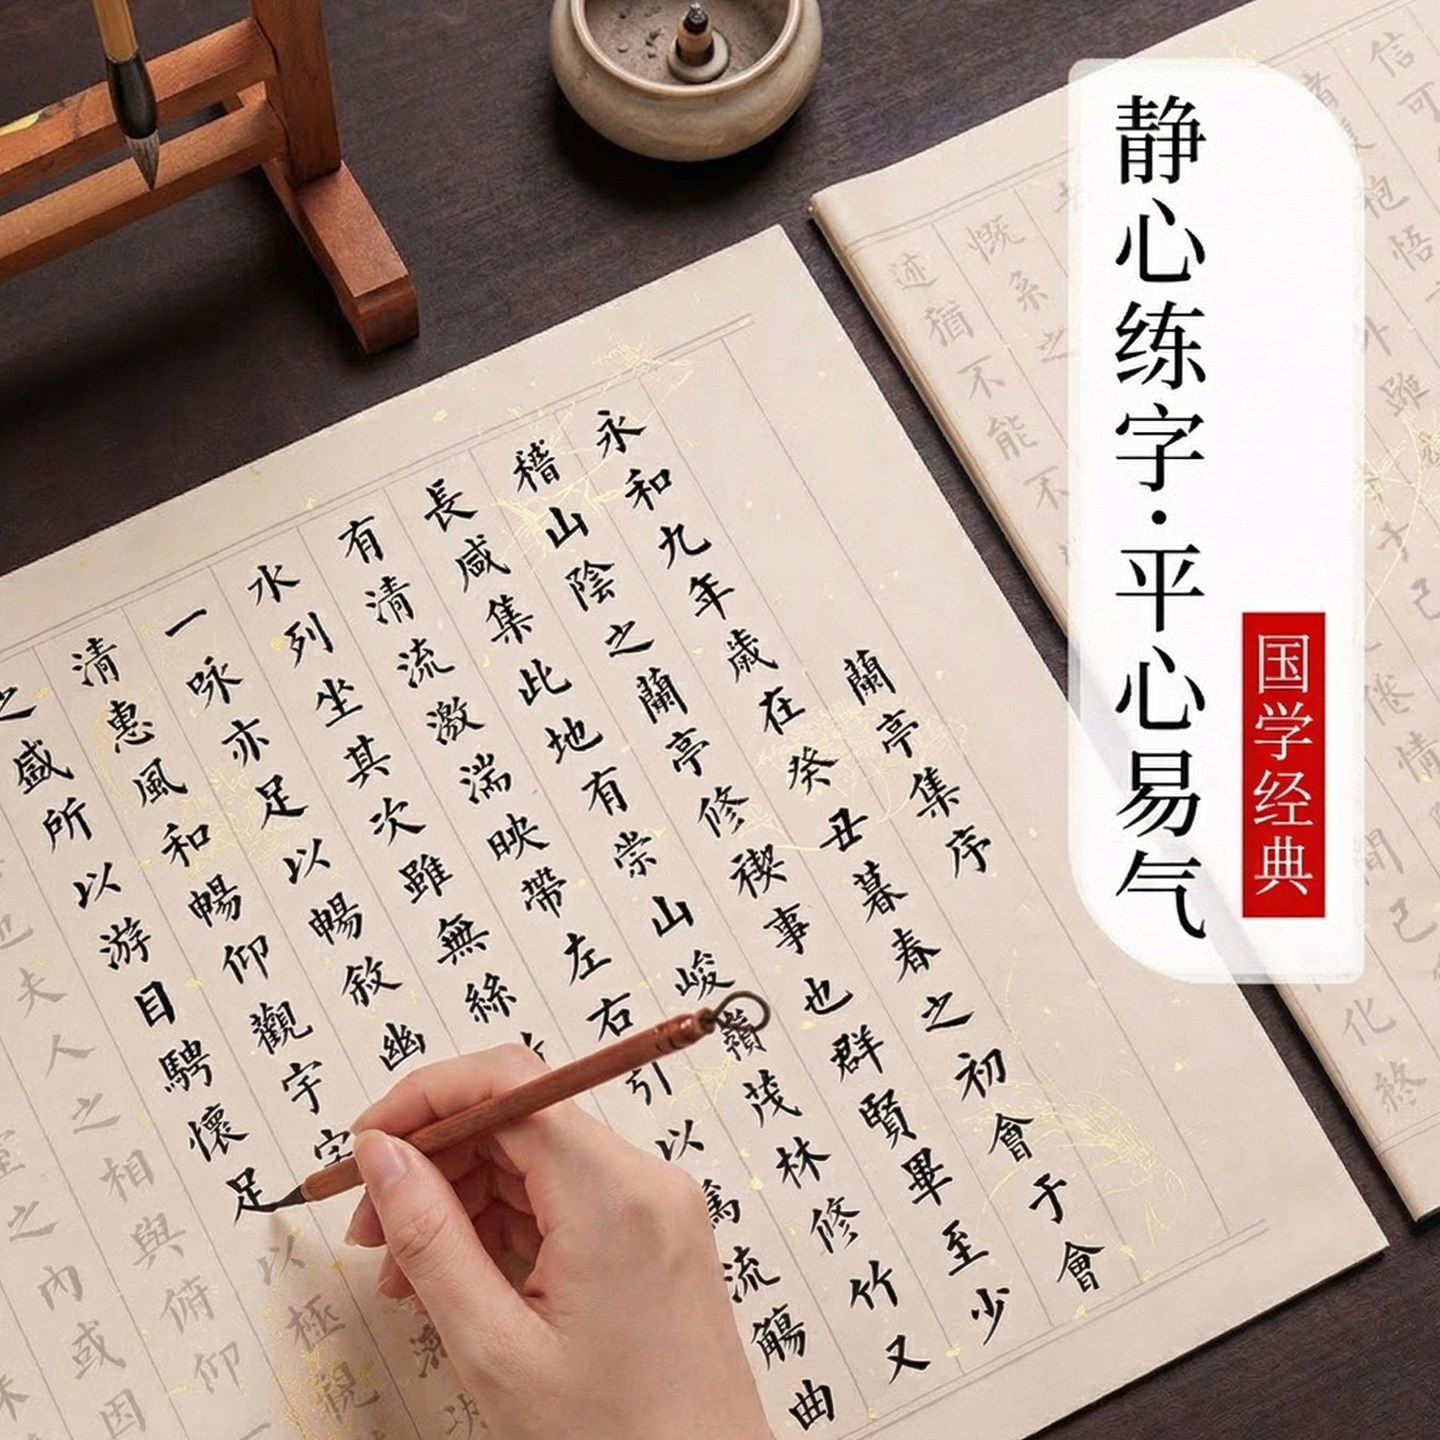 静心练字·平心易气
国学经典
信可
抱悟
外雖
慨系之
述猶不能不
倦情
間己化終
蘭亭集序
永和九年歲在癸丑暮春之初會于會
稽山陰之蘭亭修禊事也群賢畢至少
長咸集此地有崇山峻嶺茂林修竹又
有清流激湍映帶左右引以為流觴曲
水列坐其次雖無絲
一咏亦足以暢敘幽
清惠風和暢仰觀宇宙
之盛所以游目騁懷足以極視
也夫人之相與俯仰一
室之內或因